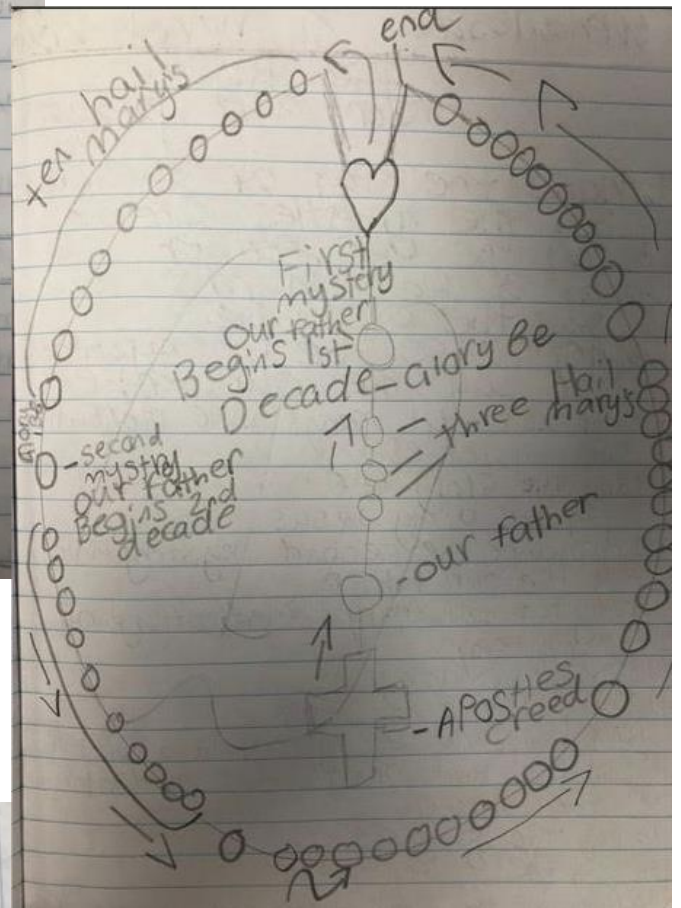 end
ten hail
mary's
First
mystery
our father
Begins 1st
Decade - Glory Be
three Hail
mary's
Glory
Be
- second
mystry
our father
Begins 2nd
decade
- our father
- APOStles
creed